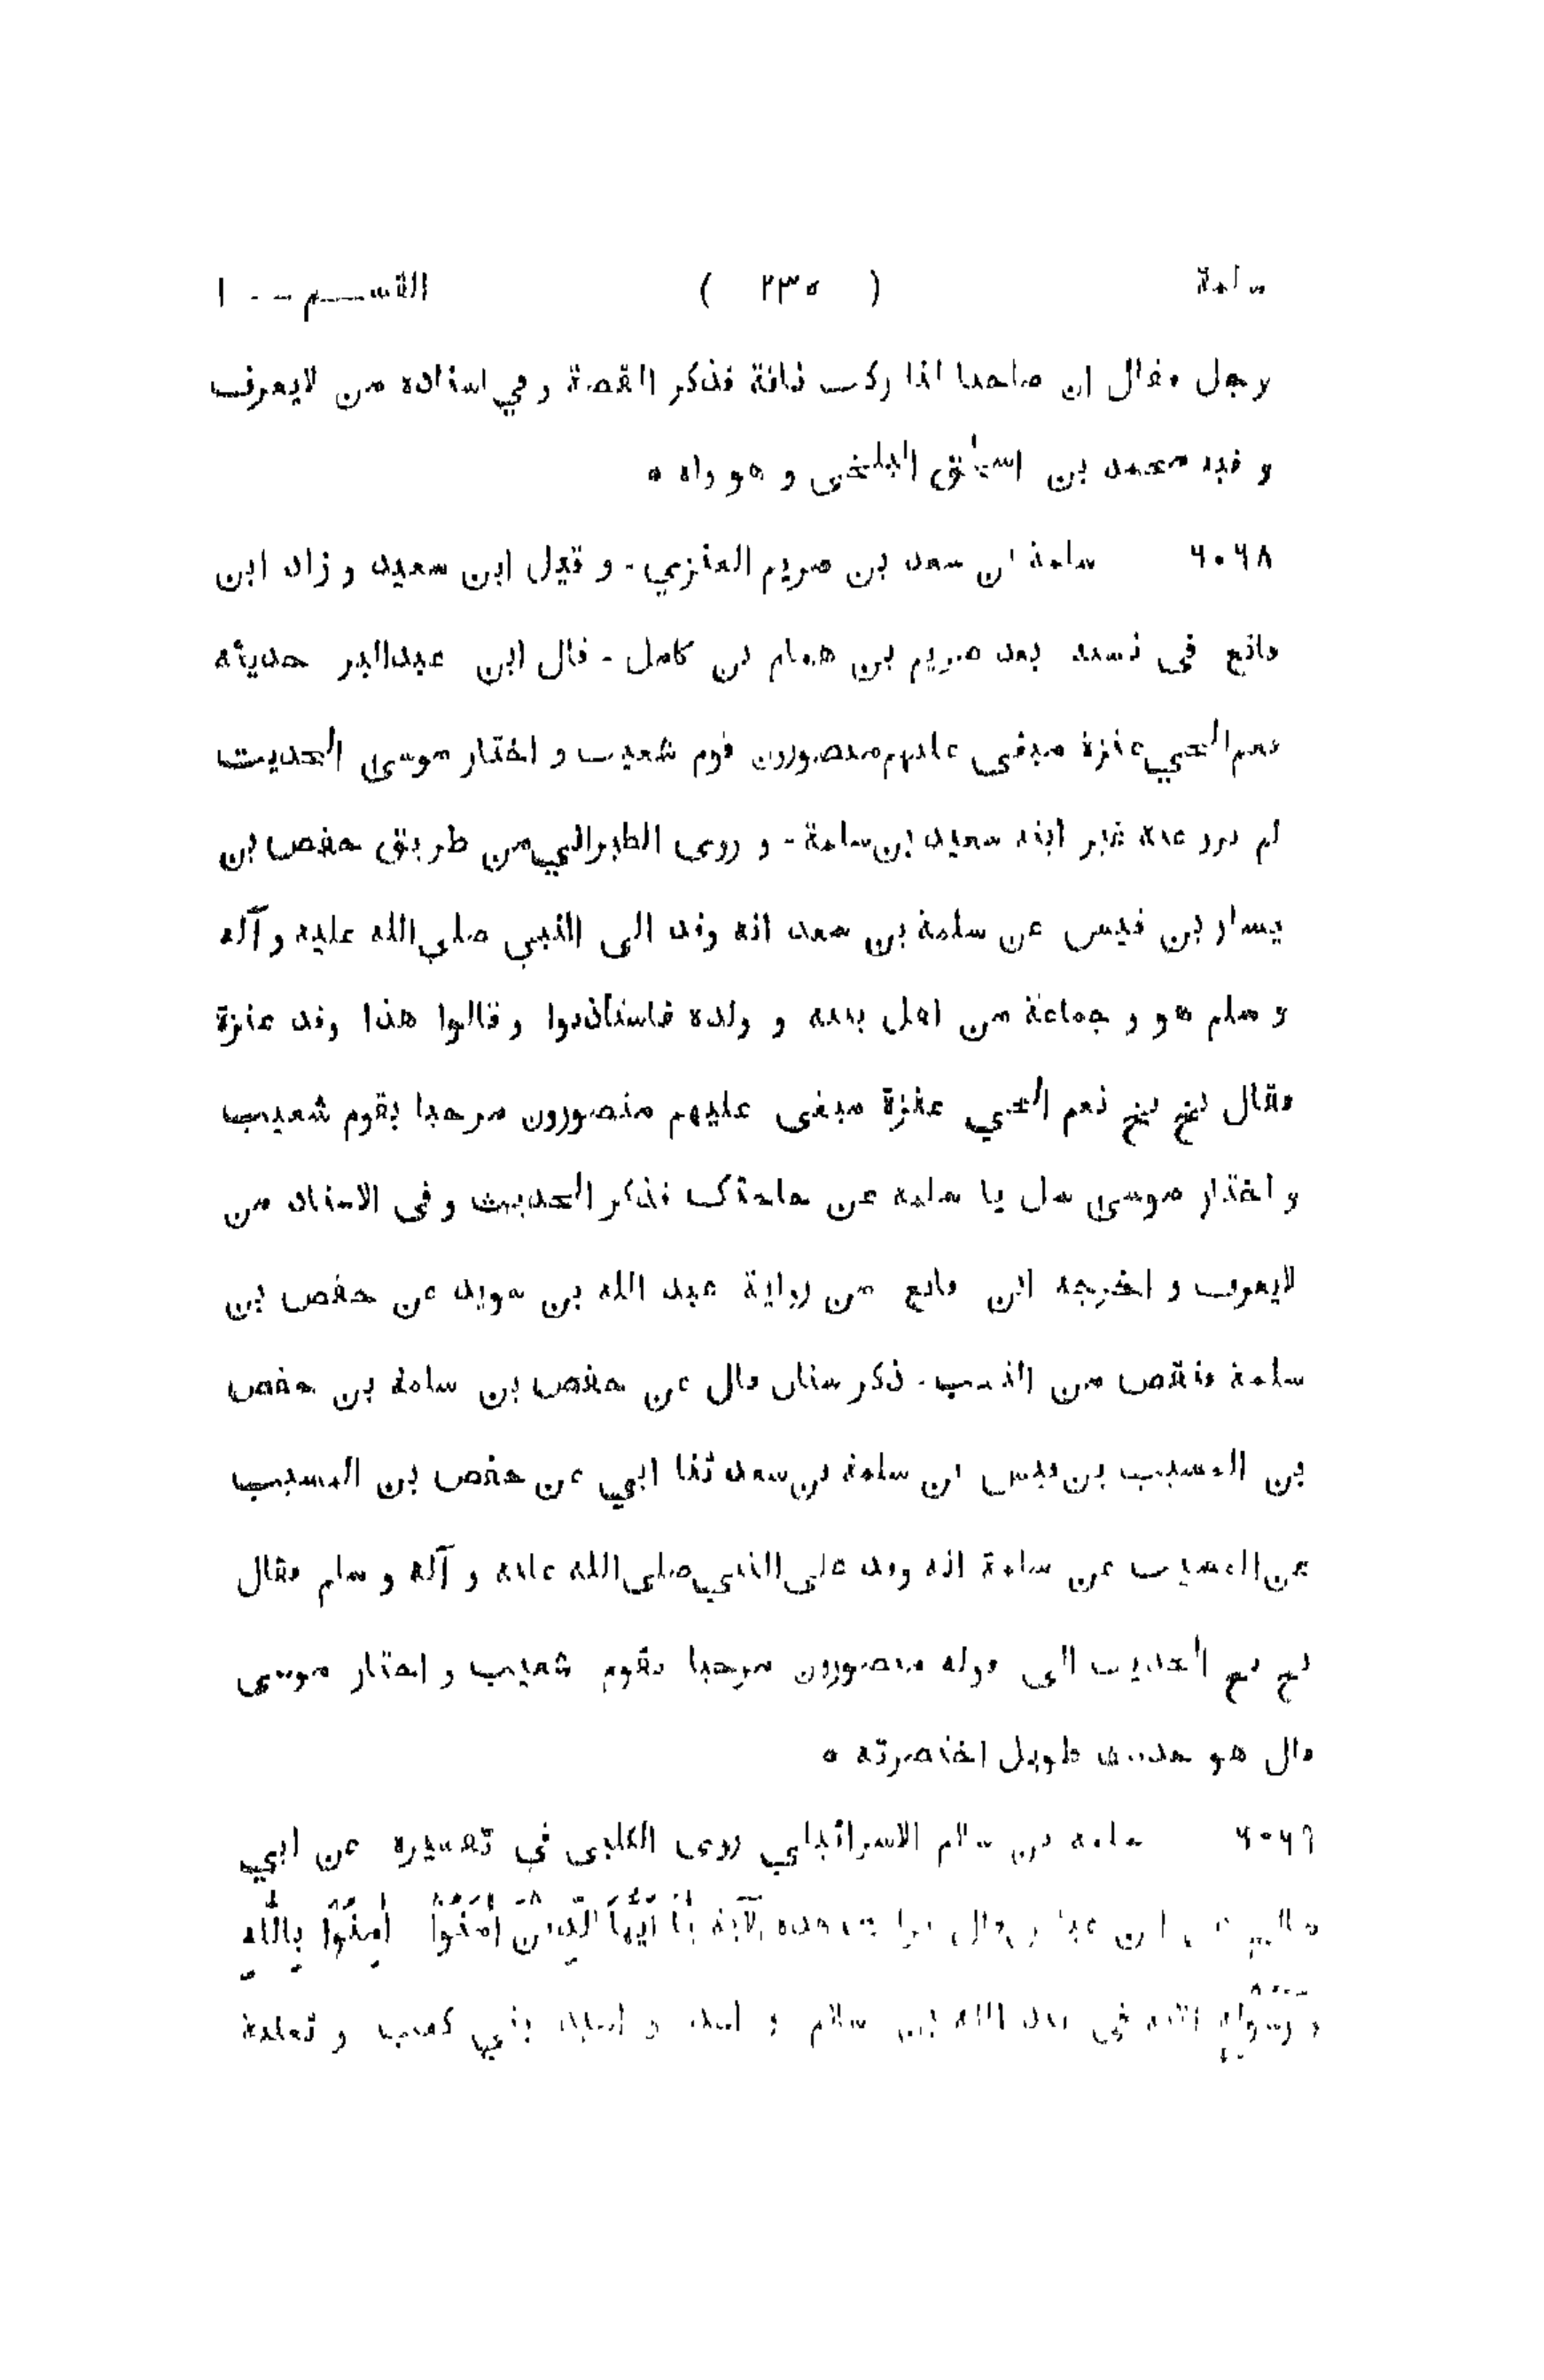 سلمة ( ٢٣٥ ) القسم -- ١
رجل فقال ان صاحبنا اذا ركب ناقة فذكر القصة و في اسناده من لايعرف
و فيه محمد بن اسحٰق البلخى و هو واه ٥
٦٠٦٨ سلمة بن سعد بن صريم العنزي - و قيل ابن سعيد و زاد ابن
قانع فى نسبه بعد صريم بن همام بن كامل - قال ابن عبدالبر حديثه
نعم الحي عنزة مبغى عليهم منصورون قوم شعيب و اختار موسى الحديث
لم يرو عنه غير ابنه سعيد بن سلمة - و روى الطبراني من طريق حفص بن
يسار بن قيس عن سلمة بن سعد انه وفد الى النبي صلي الله عليه و آله
و سلم هو و جماعة من اهل بيته و ولده فاستأذنوا و قالوا هذا وفد عنزة
فقال بخ بخ نعم الحي عنزة مبغى عليهم منصورون مرحبا بقوم شعيب
و اختار موسى سل يا سلمه عن حاجتك فذكر الحديث و فى الاسناد من
لايعرف و اخرجه ابن قانع من رواية عبد الله بن سويد عن حفص بن
سلمة فنقص من النسب - ذكر سنان قال عن حفص بن سلمة بن حفص
بن المسيب بن قيس بن سلمة بن سعد ثنا ابي عن حفص بن المسيب
عن المسيب عن سلمة انه وفد على النبي صلى الله عليه و آله و سلم فقال
بخ بخ الحديث الى قوله منصورون مرحبا بقوم شعيب و اختار موسى
قال هو حديث طويل اختصرته ٥
٦٠٦٩ سلمه بن سلام الاسرائيلي روى الكلبى في تفسيره عن ابي
صالح عن ابن عباس قال نزلت هذه الآية يَا أَيُّهَا الَّذِينَ آمَنُوْا آمِنُوْا بِاللهِ
وَ رَسُوْلِهِ الآيه فى عبد الله بن سلام و اسد و اسيد بني كعب و ثعلبة